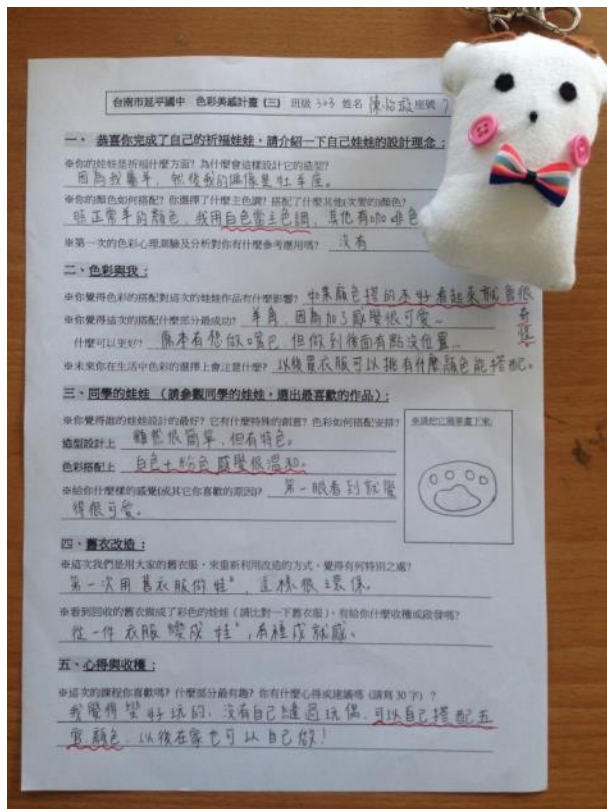 台南市延平國中 色彩美感計畫 (三) 班級 303 姓名 陳怡璇 座號 7
一、 恭喜你完成了自己的祈福娃娃，請介紹一下自己娃娃的設計理念：
※你的娃娃是祈福什麼方面? 為什麼會這樣設計它的造型?
因為我屬羊，然後我的偶像是牡羊座。
※你的顏色如何搭配? 你選擇了什麼主色調? 搭配了什麼其他(次要的)顏色?
照正常羊的顏色，我用白色當主色調，其他有咖啡色
※第一次的色彩心理測驗及分析對你有什麼參考應用嗎? 沒有
二、色彩與我：
※你覺得色彩的搭配對這次的娃娃作品有什麼影響? 如果顏色搭的不好看起來就會很奇怪。
※你覺得這次的搭配什麼部分最成功? 羊角，因為加了感覺很可愛。
什麼可以更好? 原本有想做嘴巴，但做到後面有點沒位置。
※未來你在生活中色彩的選擇上會注意什麼? 以後買衣服可以挑有什麼顏色能搭配。
三、同學的娃娃 （請參觀同學的娃娃，選出最喜歡的作品）：
※你覺得誰的娃娃設計的最好? 它有什麼特殊的創意? 色彩如何搭配安排?
※請把它簡單畫下來:
造型設計上 雖然很簡單，但有特色。
色彩搭配上 白色+粉色感覺很溫和。
※給你什麼樣的感覺(或其它你喜歡的原因)? 第一眼看到就覺
得很可愛。
四、舊衣改造：
※這次我們是用大家的舊衣服，來重新利用改造的方式，覺得有何特別之處?
第一次用舊衣服做娃娃，這樣很環保。
※看到回收的舊衣做成了彩色的娃娃（請比對一下舊衣服），有給你什麼收穫或啟發嗎?
從一件衣服變成娃娃，有種成就感。
五、心得與收穫：
※這次的課程你喜歡嗎? 什麼部分最有趣? 你有什麼心得或建議嗎 (請寫 30 字) ?
我覺得蠻好玩的，沒有自己縫過玩偶，可以自己搭配五
官、顏色，以後在家也可以自己做！